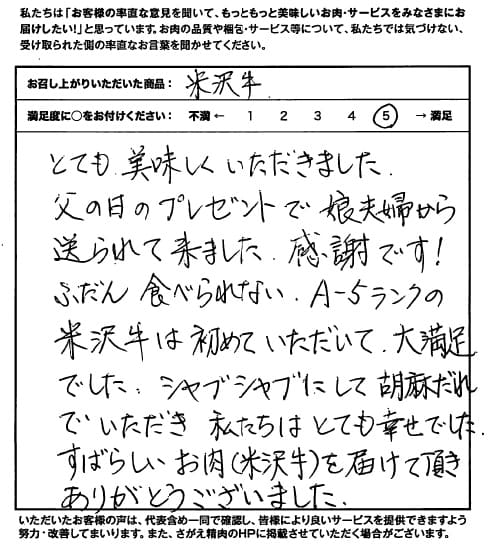 私たちは「お客様の率直な意見を聞いて、もっともっと美味しいお肉・サービスをみなさまにお
届けしたい!」と思っています。お肉の品質や梱包・サービス等について、私たちでは気づけない、
受け取られた側の率直なお言葉を聞かせてください。
お召し上がりいただいた商品: 米沢牛
満足度に○をお付けください: 不満 ← 1 2 3 4 5 → 満足
とても 美味しくいただきました.
父の日のプレゼントで 娘夫婦から
送られて来ました. 感謝です!
ふだん 食べられない. A-5ランクの
米沢牛は初めていただいて. 大満足
でした. シャブシャブにして胡麻だれ
でいただき 私たちはとても幸せでした.
すばらしいお肉(米沢牛)を届けて頂き
ありがとうございました.
いただいたお客様の声は、代表含め一同で確認し、皆様により良いサービスを提供できますよう
努力・改善してまいります。また、さがえ精肉のHPに掲載させていただく場合がございます。